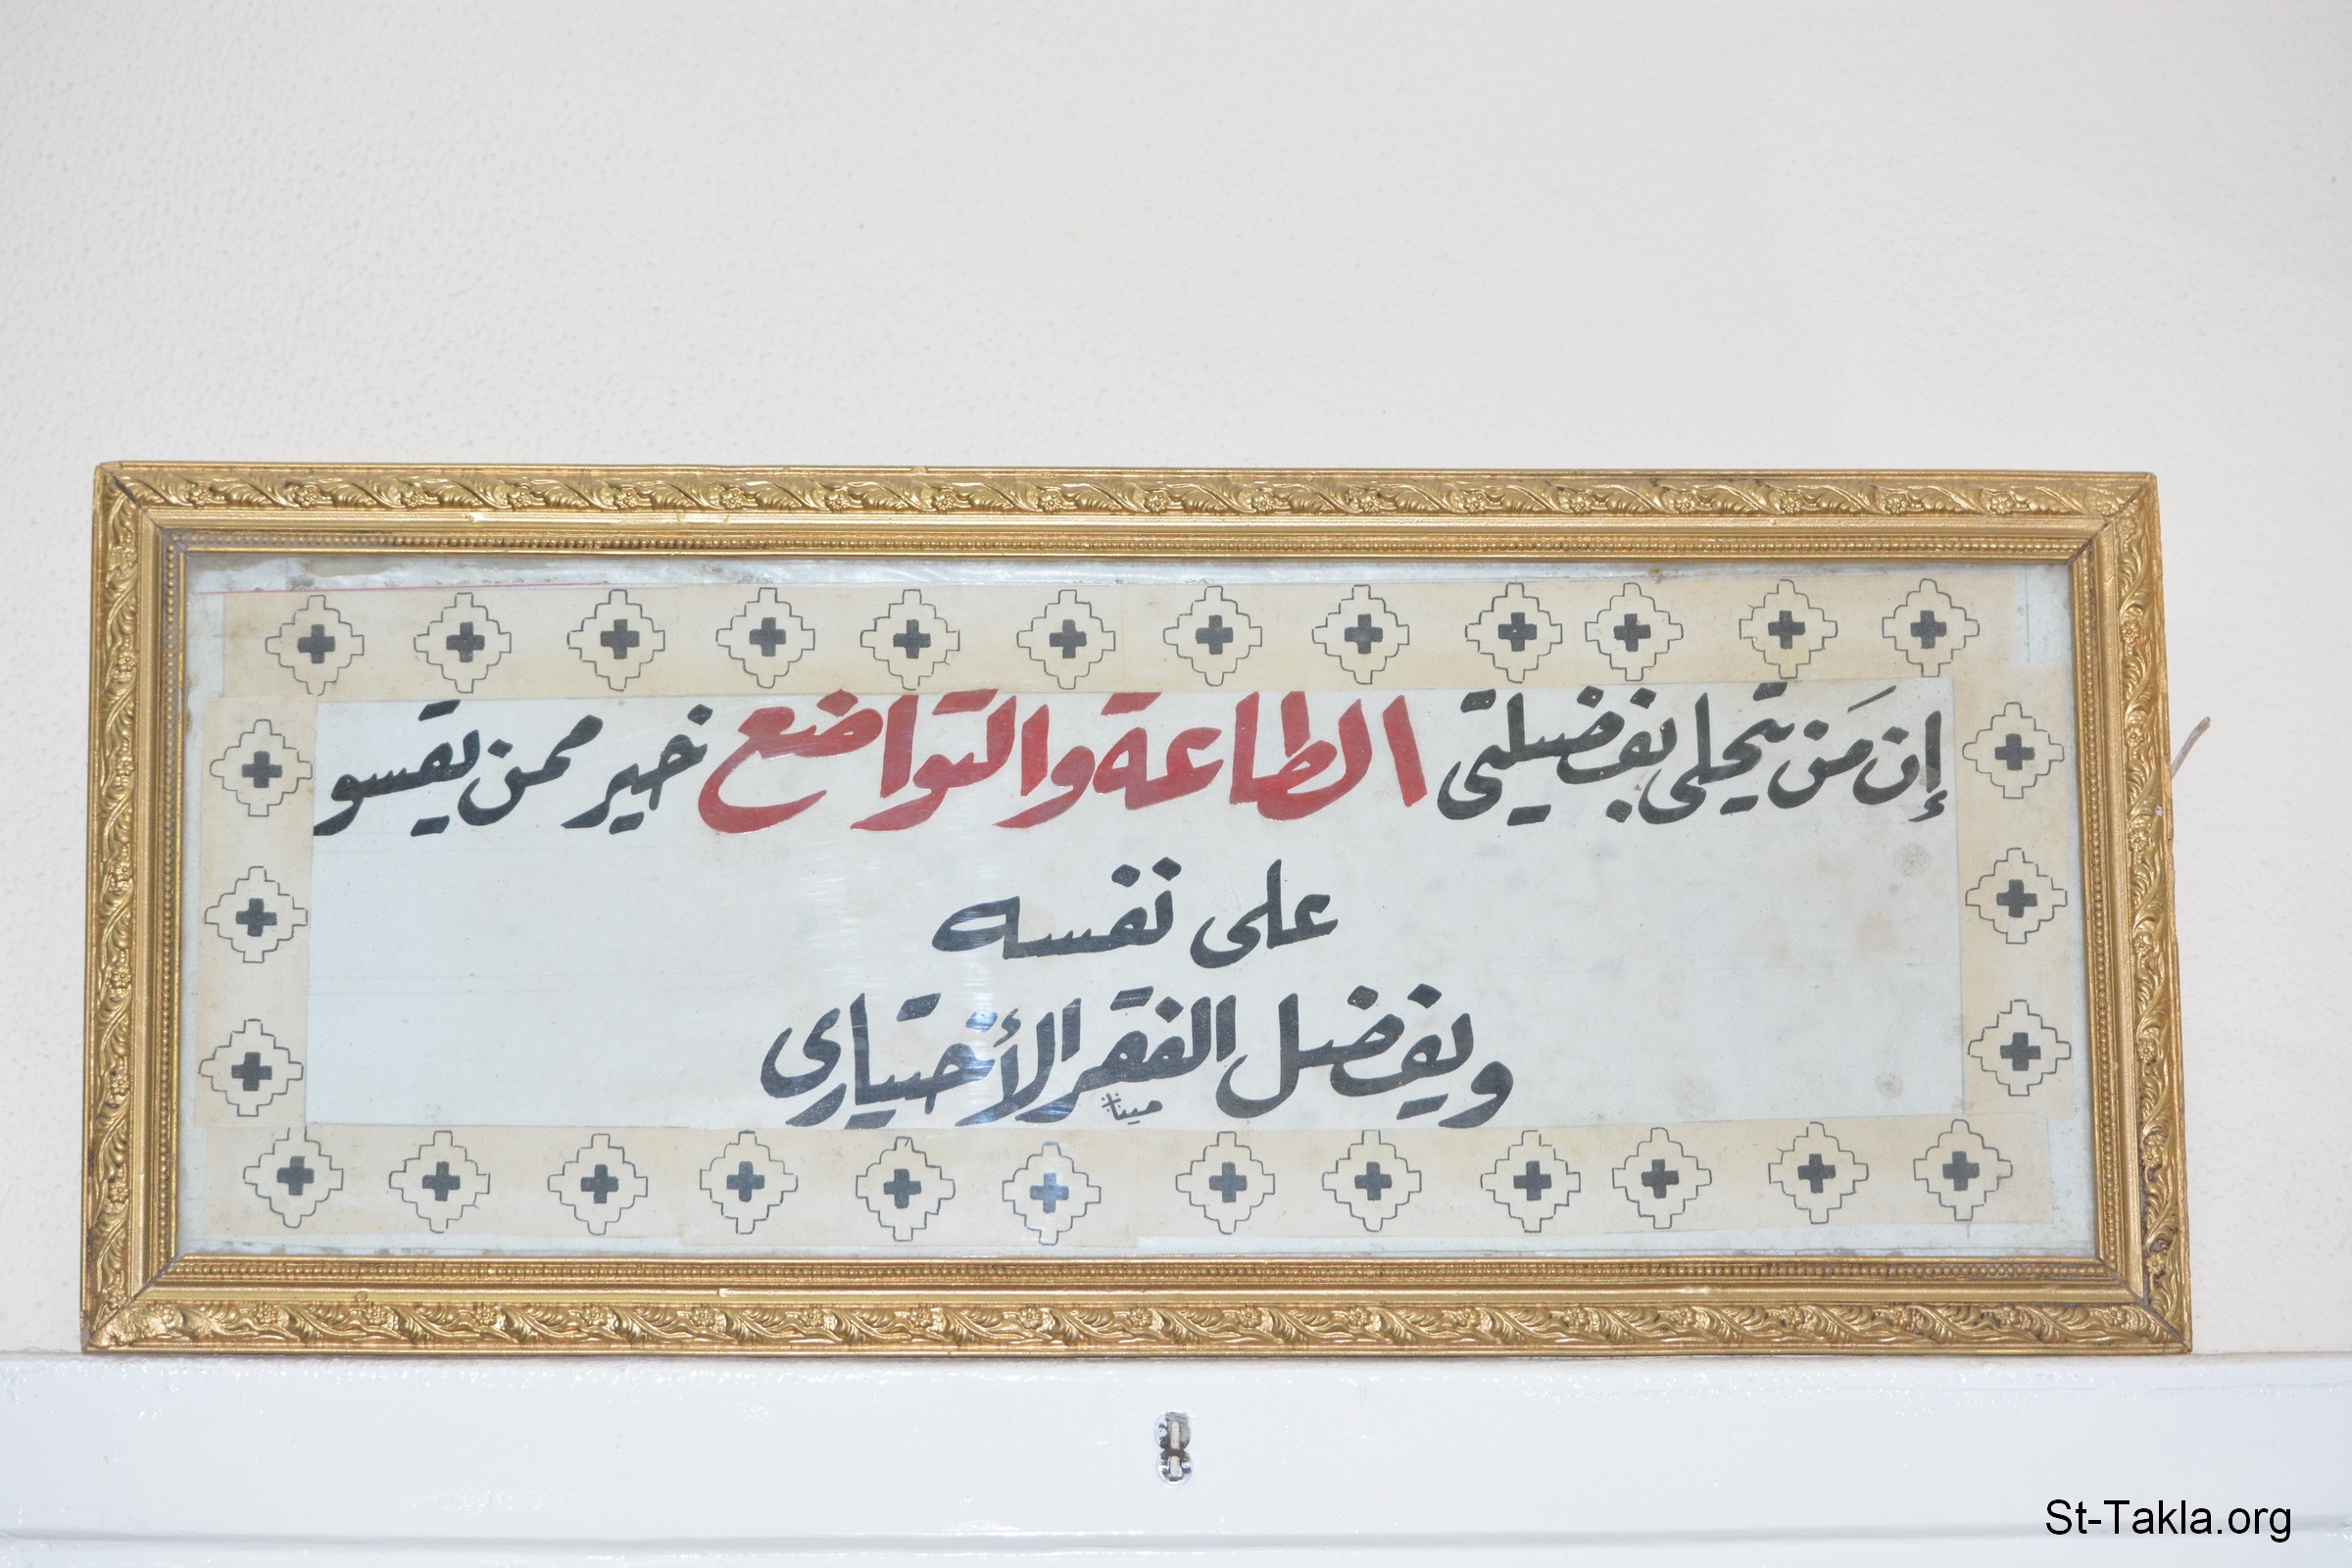 إن مَن يتحلى بفضيلتى الطاعة والتواضع خير ممن يقسو
على نفسه
ويفضل الفقر الأختيارى
مينا
St-Takla.org